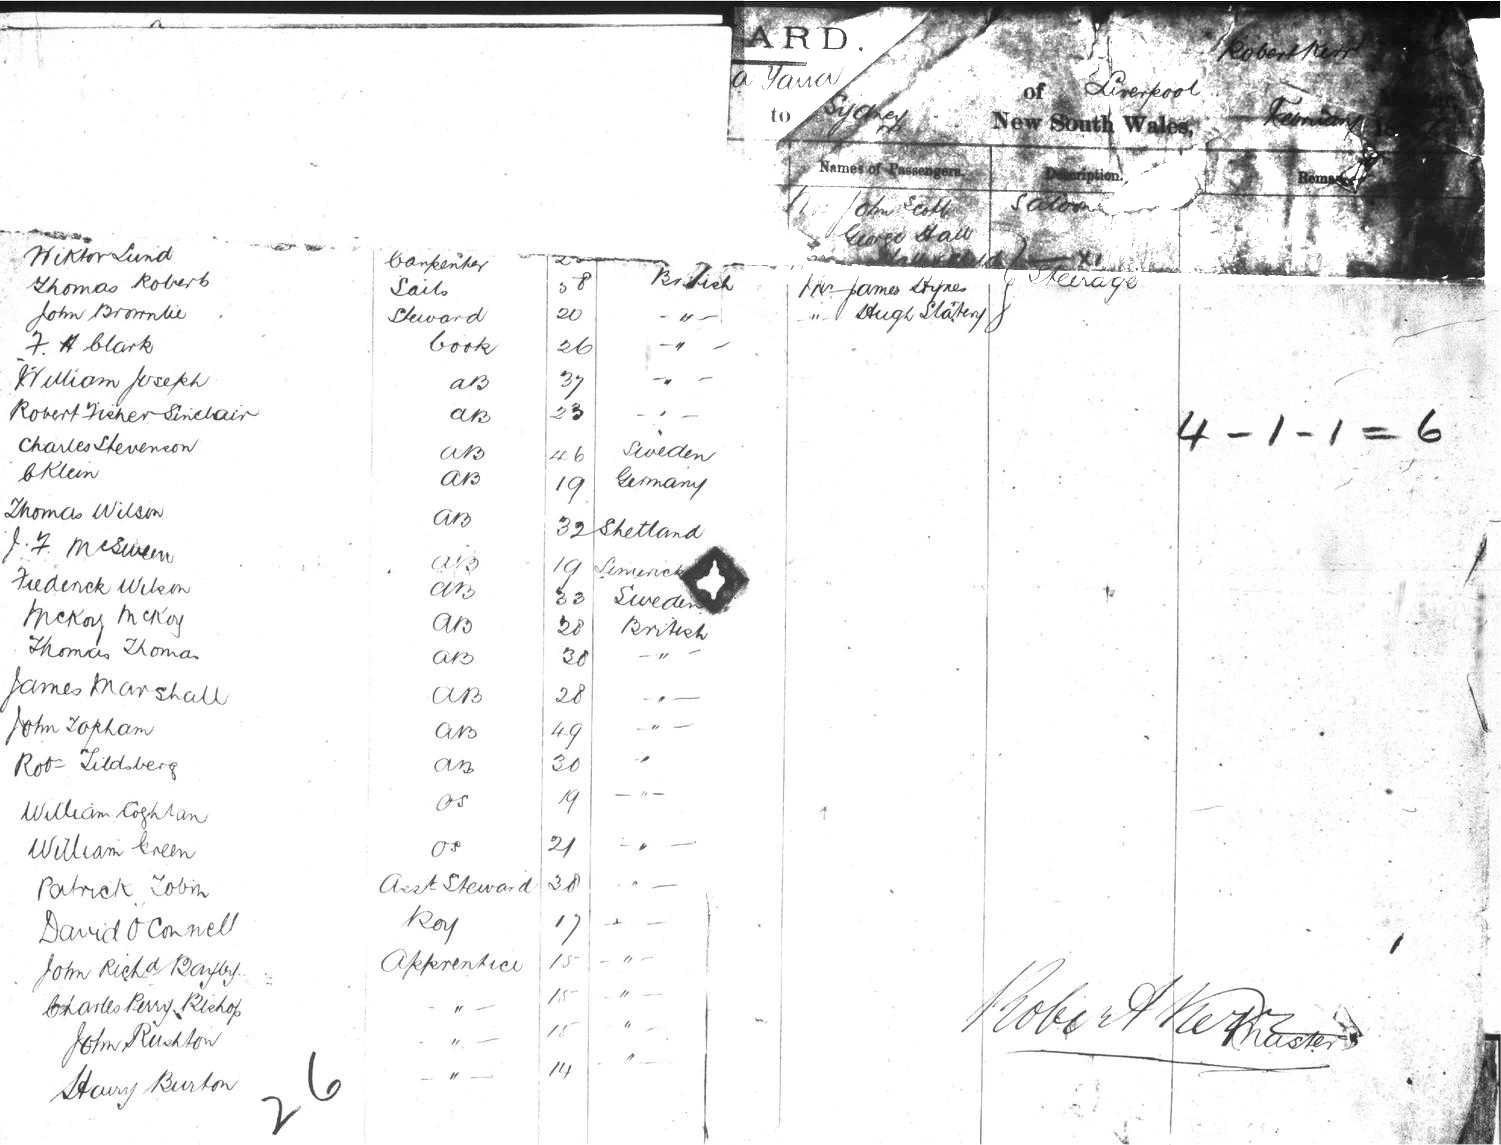 ARD.
a Yarra of Liverpool Robert Kerr
to Sydney New South Wales, February
Names of Passengers. Description. Remarks
John Scott Saloon
George Hall
Wiktor Lund Carpenter
Thomas Robert Sails 38 British James Hynes Steerage
John Brownlie Steward 20 - " - " Hugh Slattery
F. H Clark Cook 26 - " -
William Joseph AB 37 - " -
Robert Fisher Sinclair AB 23 - " -
4 - 1 - 1 = 6
Charles Stevenson AB 46 Sweden
C Klein AB 19 Germany
Thomas Wilson AB 32 Shetland
J. F. McSween AB 19 Limerick
Frederick Wilson AB 33 Sweden
McKoy McKoy AB 28 British
Thomas Thomas AB 38 - " -
James Marshall AB 28 - " -
John Topham AB 49 - " -
Robt Tildsberg AB 30 "
William Coghlan OS 19 - " -
William Green OS 21 - " -
Patrick Tobin Asst Steward 38 " -
David O Connell Boy 17 " -
John Richd Bayby Apprentice 15 - " -
Charles Perry Bishop - " - 15 " -
John Rushton - " - 15 " -
Robert Kerr Master
Harry Burton - " - 14 " -
26